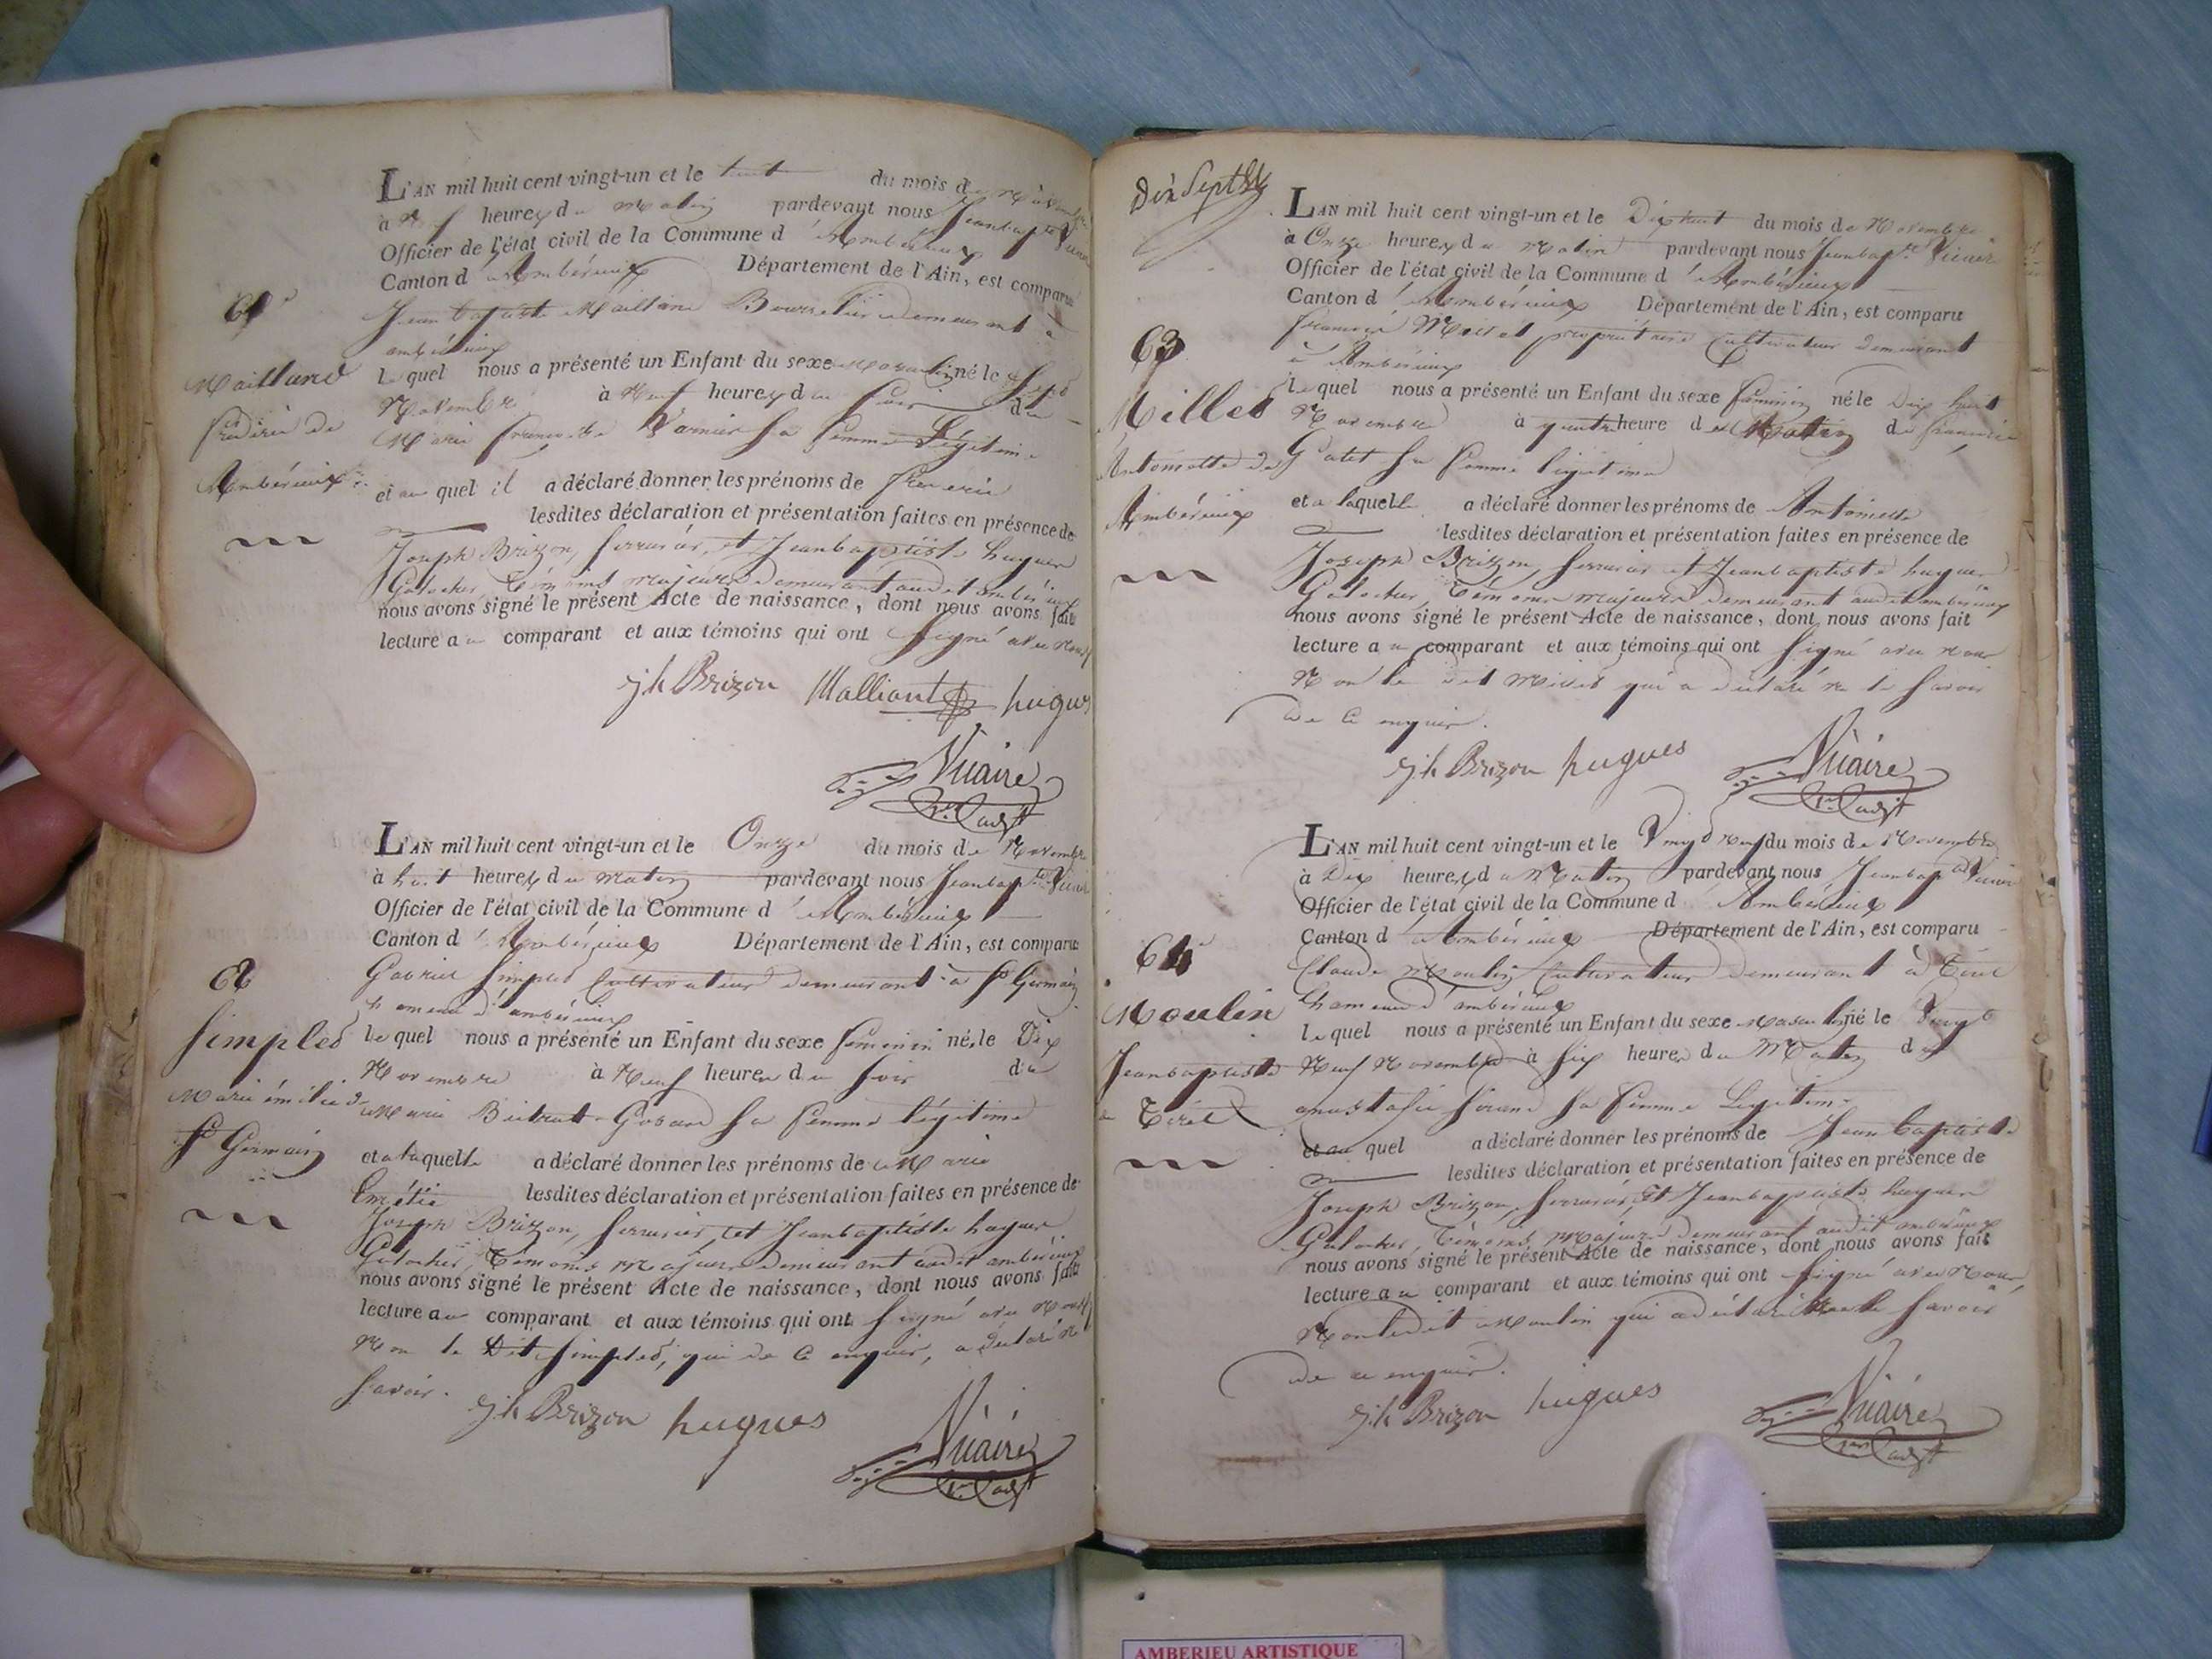 L'AN mil huit cent vingt-un et le huit du mois de Novembre
à Neuf heures du Matin pardevant nous Jeanbapte Vicaire
Officier de l'état civil de la Commune d'Ambérieux
Canton d'Ambérieux Département de l'Ain, est comparu
61e
Jean baptiste Mailland Bourrelier demeurant à
ambérieux
Mailland
lequel nous a présenté un Enfant du sexe Masculin né le Sept
Novembre à Neuf heures du Soir de
fréderic de
Marie françoise Varnier Sa femme Légitime
Ambérieux
et au quel il a déclaré donner les prénoms de frederic
lesdites déclaration et présentation faites en présence de
Joseph Brizon, Serrurier, et Jeanbaptiste hugues
Galocher, Témoins majeurs demeurant audit ambérieux
nous avons signé le présent Acte de naissance, dont nous avons fait
lecture au comparant et aux témoins qui ont Signé avec nous
jh Brizon Malliant hugues
Vicaire
L'AN mil huit cent vingt-un et le Onze du mois de Novembre
à huit heures du matin pardevant nous Jeanbapte Vicaire
Officier de l'état civil de la Commune d'Ambérieux
Canton d'Ambérieux Département de l'Ain, est comparu
62
Gabriel Simpled Cultivateur demeurant à St Germain
hameau d'ambérieux
Simpled
lequel nous a présenté un Enfant du sexe féminin né le Dix
Novembre à Neuf heures du Soir de
Marie émilie de
Marie Gobard Sa femme légitime
St Germain
et a laquelle a déclaré donner les prénoms de Marie
Emélie lesdites déclaration et présentation faites en présence de
Joseph Brizon, Serrurier, et Jeanbaptiste hugues
Galocher, Témoins Majeurs demeurant audit ambérieux
nous avons signé le présent Acte de naissance, dont nous avons fait
lecture au comparant et aux témoins qui ont Signé avec Nous
Non le Dit Simpled, qui de Ce enquis, a déclaré ne
Savoir.
jh Brizon hugues
Vicaire
Dix Sept
L'AN mil huit cent vingt-un et le Dix huit du mois de Novembre
à Onze heures du Matin pardevant nous Jeanbapte Vicaire
Officier de l'état civil de la Commune d'Ambérieux
Canton d'Ambérieux Département de l'Ain, est comparu
63
françois Millet propriétaire Cultivateur demeurant
à Ambérieux
Millet
lequel nous a présenté un Enfant du sexe féminin né le Dix huit
Novembre à quatre heure du Matin de
Antoinette de
Sa femme légitime
Ambérieux
et a laquelle a déclaré donner les prénoms de Antoinette
lesdites déclaration et présentation faites en présence de
Joseph Brizon, Serrurier et Jeanbaptiste hugues
Galocher, Témoins majeurs demeurant audit ambérieux
nous avons signé le présent Acte de naissance, dont nous avons fait
lecture au comparant et aux témoins qui ont Signé avec nous
Non le dit Millet qui a déclaré ne le Savoir
de Ce enquis.
jh Brizon hugues
Vicaire
L'AN mil huit cent vingt-un et le Vingt Neuf du mois de Novembre
à Dix heures du Matin pardevant nous Jeanbapte Vicaire
Officier de l'état civil de la Commune d'Ambérieux
Canton d'Ambérieux Département de l'Ain, est comparu
64e
Claude Moulin Cultivateur demeurant à Tiret
hameau d'ambérieux
Moulin
lequel nous a présenté un Enfant du sexe Masculin né le Vingt
Jeanbaptiste
Neuf Novembre à Six heures du Matin de
de Tiret
anastasie Sa femme Légitime
et au quel a déclaré donner les prénoms de Jean baptiste
lesdites déclaration et présentation faites en présence de
Joseph Brizon, Serrurier, et Jeanbaptiste hugues
Galocher, Témoins Majeurs demeurant audit ambérieux
nous avons signé le présent Acte de naissance, dont nous avons fait
lecture au comparant et aux témoins qui ont Signé avec Nous,
Non ledit Moulin qui a déclaré ne le Savoir
de ce enquis.
jh Brizon hugues
Vicaire
AMBERIEU ARTISTIQUE